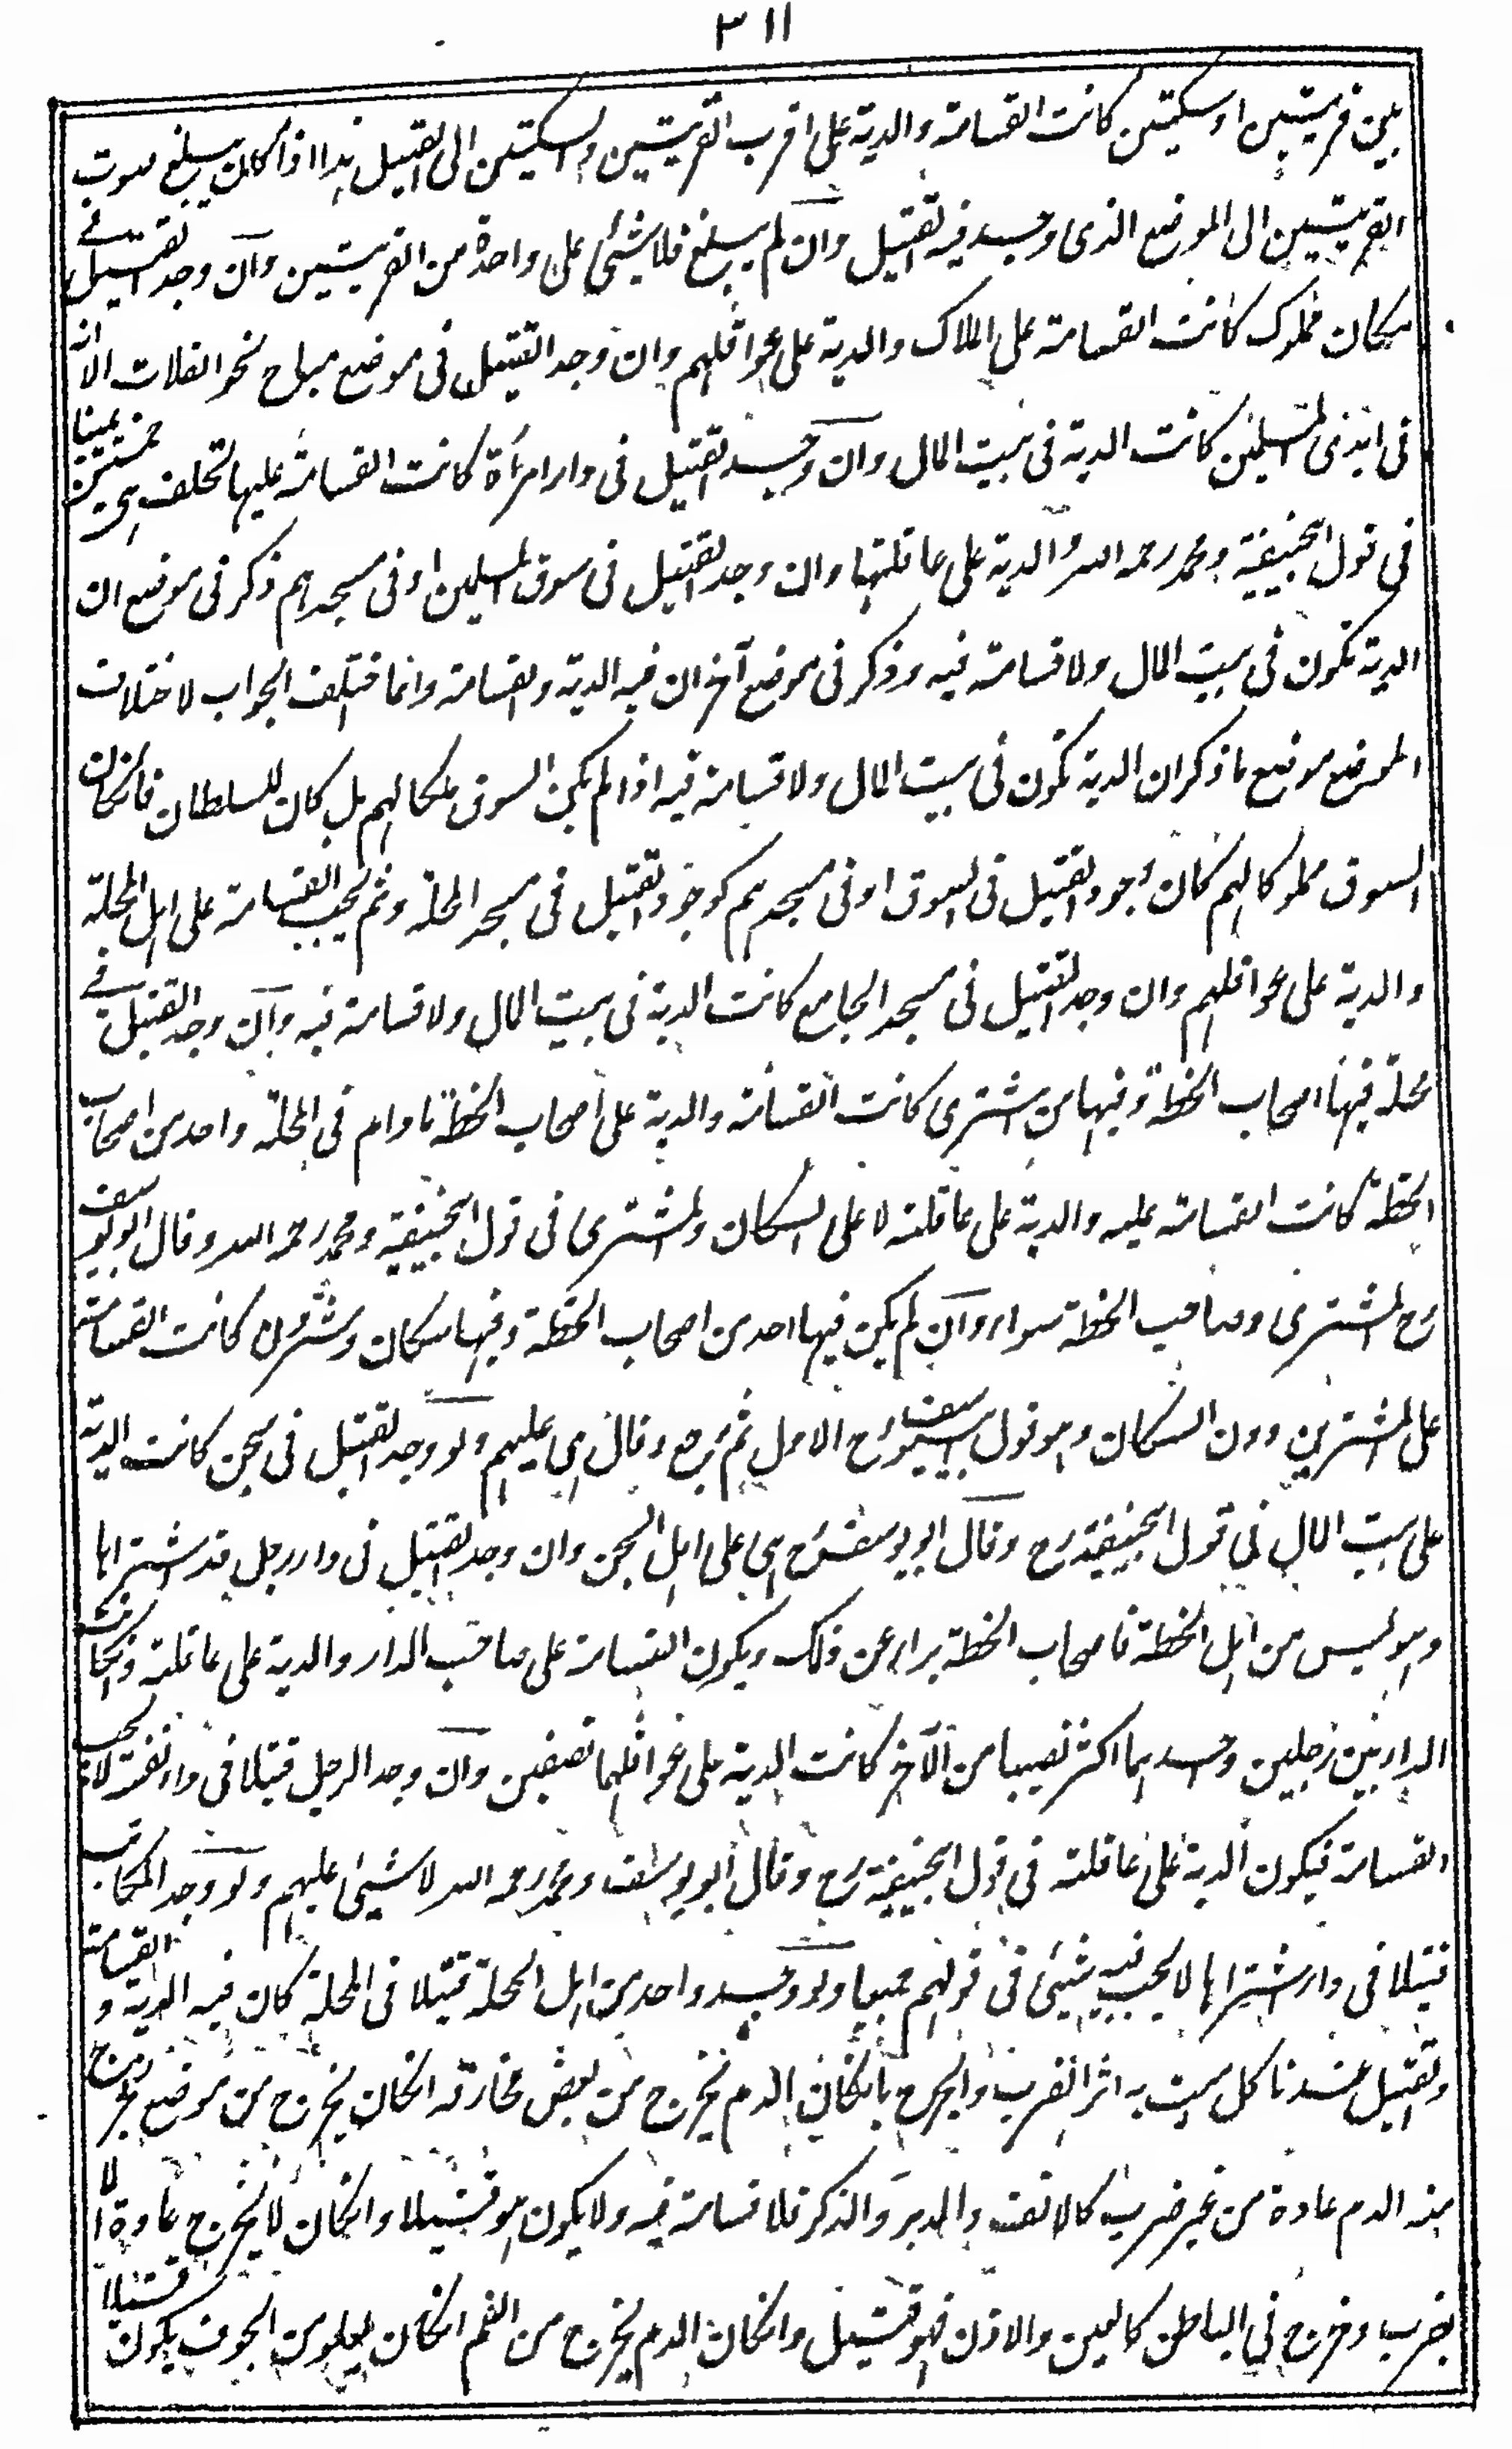 ٣١١
بين قريتين او سكتين كانت القسامة والدية على اقرب القريتين والسكتين الى القتيل هذا اذا كان يبلغ صوت
القريتين الى الموضع الذى وجد فيه القتيل وان لم يبلغ فلا شئ على واحدة من القريتين وان وجد القتيل فے
مكان مملوك كانت القسامة على الملاك والدية على عواقلهم وان وجد القتيل فى موضع مباح نحو الفلات الا انه
فى ايدى المسلمين كانت الدية فى بيت المال وان وجد القتيل فى دار امرأة كانت القسامة عليها تحلف هى خمسين يمينا
فى قول ابيحنيفة ومحمد رحمه الله والدية على عاقلتها وان وجد القتيل فى سوق المسلمين او فى مسجدهم ذكر فى موضع ان
الدية تكون فى بيت المال ولا قسامة فيه وذكر فى موضع آخر ان فيه الدية والقسامة وانما اختلف الجواب لاختلاف
الموضع موضع ما ذكر ان الدية تكون فى بيت المال ولا قسامة فيه اذا لم يكن السوق ملكا لهم بل كان للسلطان فانكان
السوق مملوكا لهم كان وجود القتيل فى السوق او فى مسجدهم كوجود القتيل فى مسجد المحلة وثم يجب القسامة على اهل المحلة
والدية على عواقلهم وان وجد القتيل فى مسجد الجامع كانت الدية فى بيت المال ولا قسامة فيه وان وجد القتيل فے
محلة فيها اصحاب الخطة وفيها من يشترى كانت القسامة والدية على اصحاب الخطة ما دام فى المحلة واحد من اصحاب
الخطة كانت القسامة عليه والدية على عاقلته لا على السكان والمشترى فى قول ابيحنيفة ومحمد رحمه الله وقال ابو يوسف
رح المشترى وصاحب الخطة سواء وان لم يكن فيها احد من اصحاب الخطة وفيها سكان ومشترون كانت القسامة
على المشترين دون السكان وهو قول ابيوسف رح الاول ثم رجع وقال هى عليهم ولو وجد القتيل فى سجن كانت الدية
على بيت المال فى قول ابيحنيفة رح وقال ابو يوسف رح هى على اهل السجن وان وجد القتيل فى دار رجل قد اشتراها
وهو ليس من اهل الخطة فاصحاب الخطة براء عن ذلك ويكون القسامة على صاحب الدار والدية على عاقلته وانكانت
الدار بين رجلين واحدهما اكثر نصيبا من الآخر كانت الدية على عواقلهما نصفين وان وجد الرجل قتيلا فى دار نفسه لا يجب
القسامة فيكون الدية على عاقلته فى قول ابيحنيفة رح وقال ابو يوسف ومحمد رحمه الله لا شيئ عليهم ولو وجد المكاتب
قتيلا فى دار اشتراها لا يجب فيه شيئ فى قولهم جميعا ولو وجد واحد من اهل المحلة قتيلا فى المحلة كان فيه الدية و القسامة
والقتيل عندنا كل ميت به اثر الضرب والجرح بانكان الدم يخرج من بعض مخارقه انكان يخرج من موضع يخرج
منه الدم عادة من غير ضرب كالانف والدبر والذكر فلا قسامة فيه ولا يكون هو قتيلا وانكان لا يخرج عادة الا
بضرب وخرج فى الباطن كالعين والاذن فهو قتيل وانكان الدم يخرج من الفم انكان يعلو من الجوف يكون قتيلا